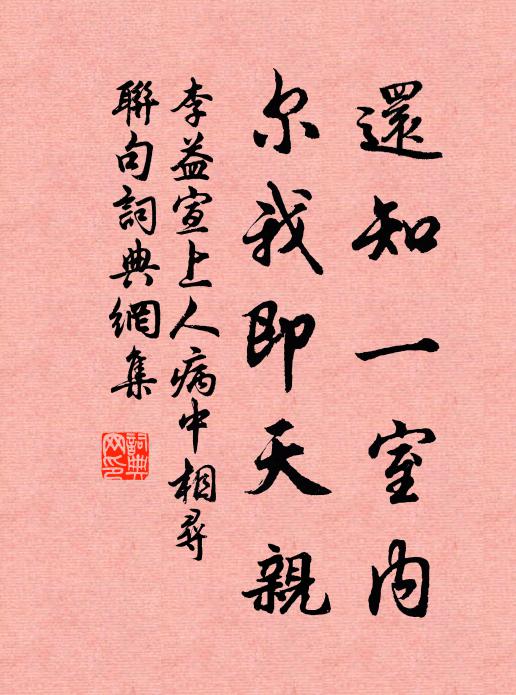 還知一室内
尔我即天親
李益宣上人病中相尋
聯句詞典網集
詞典网印